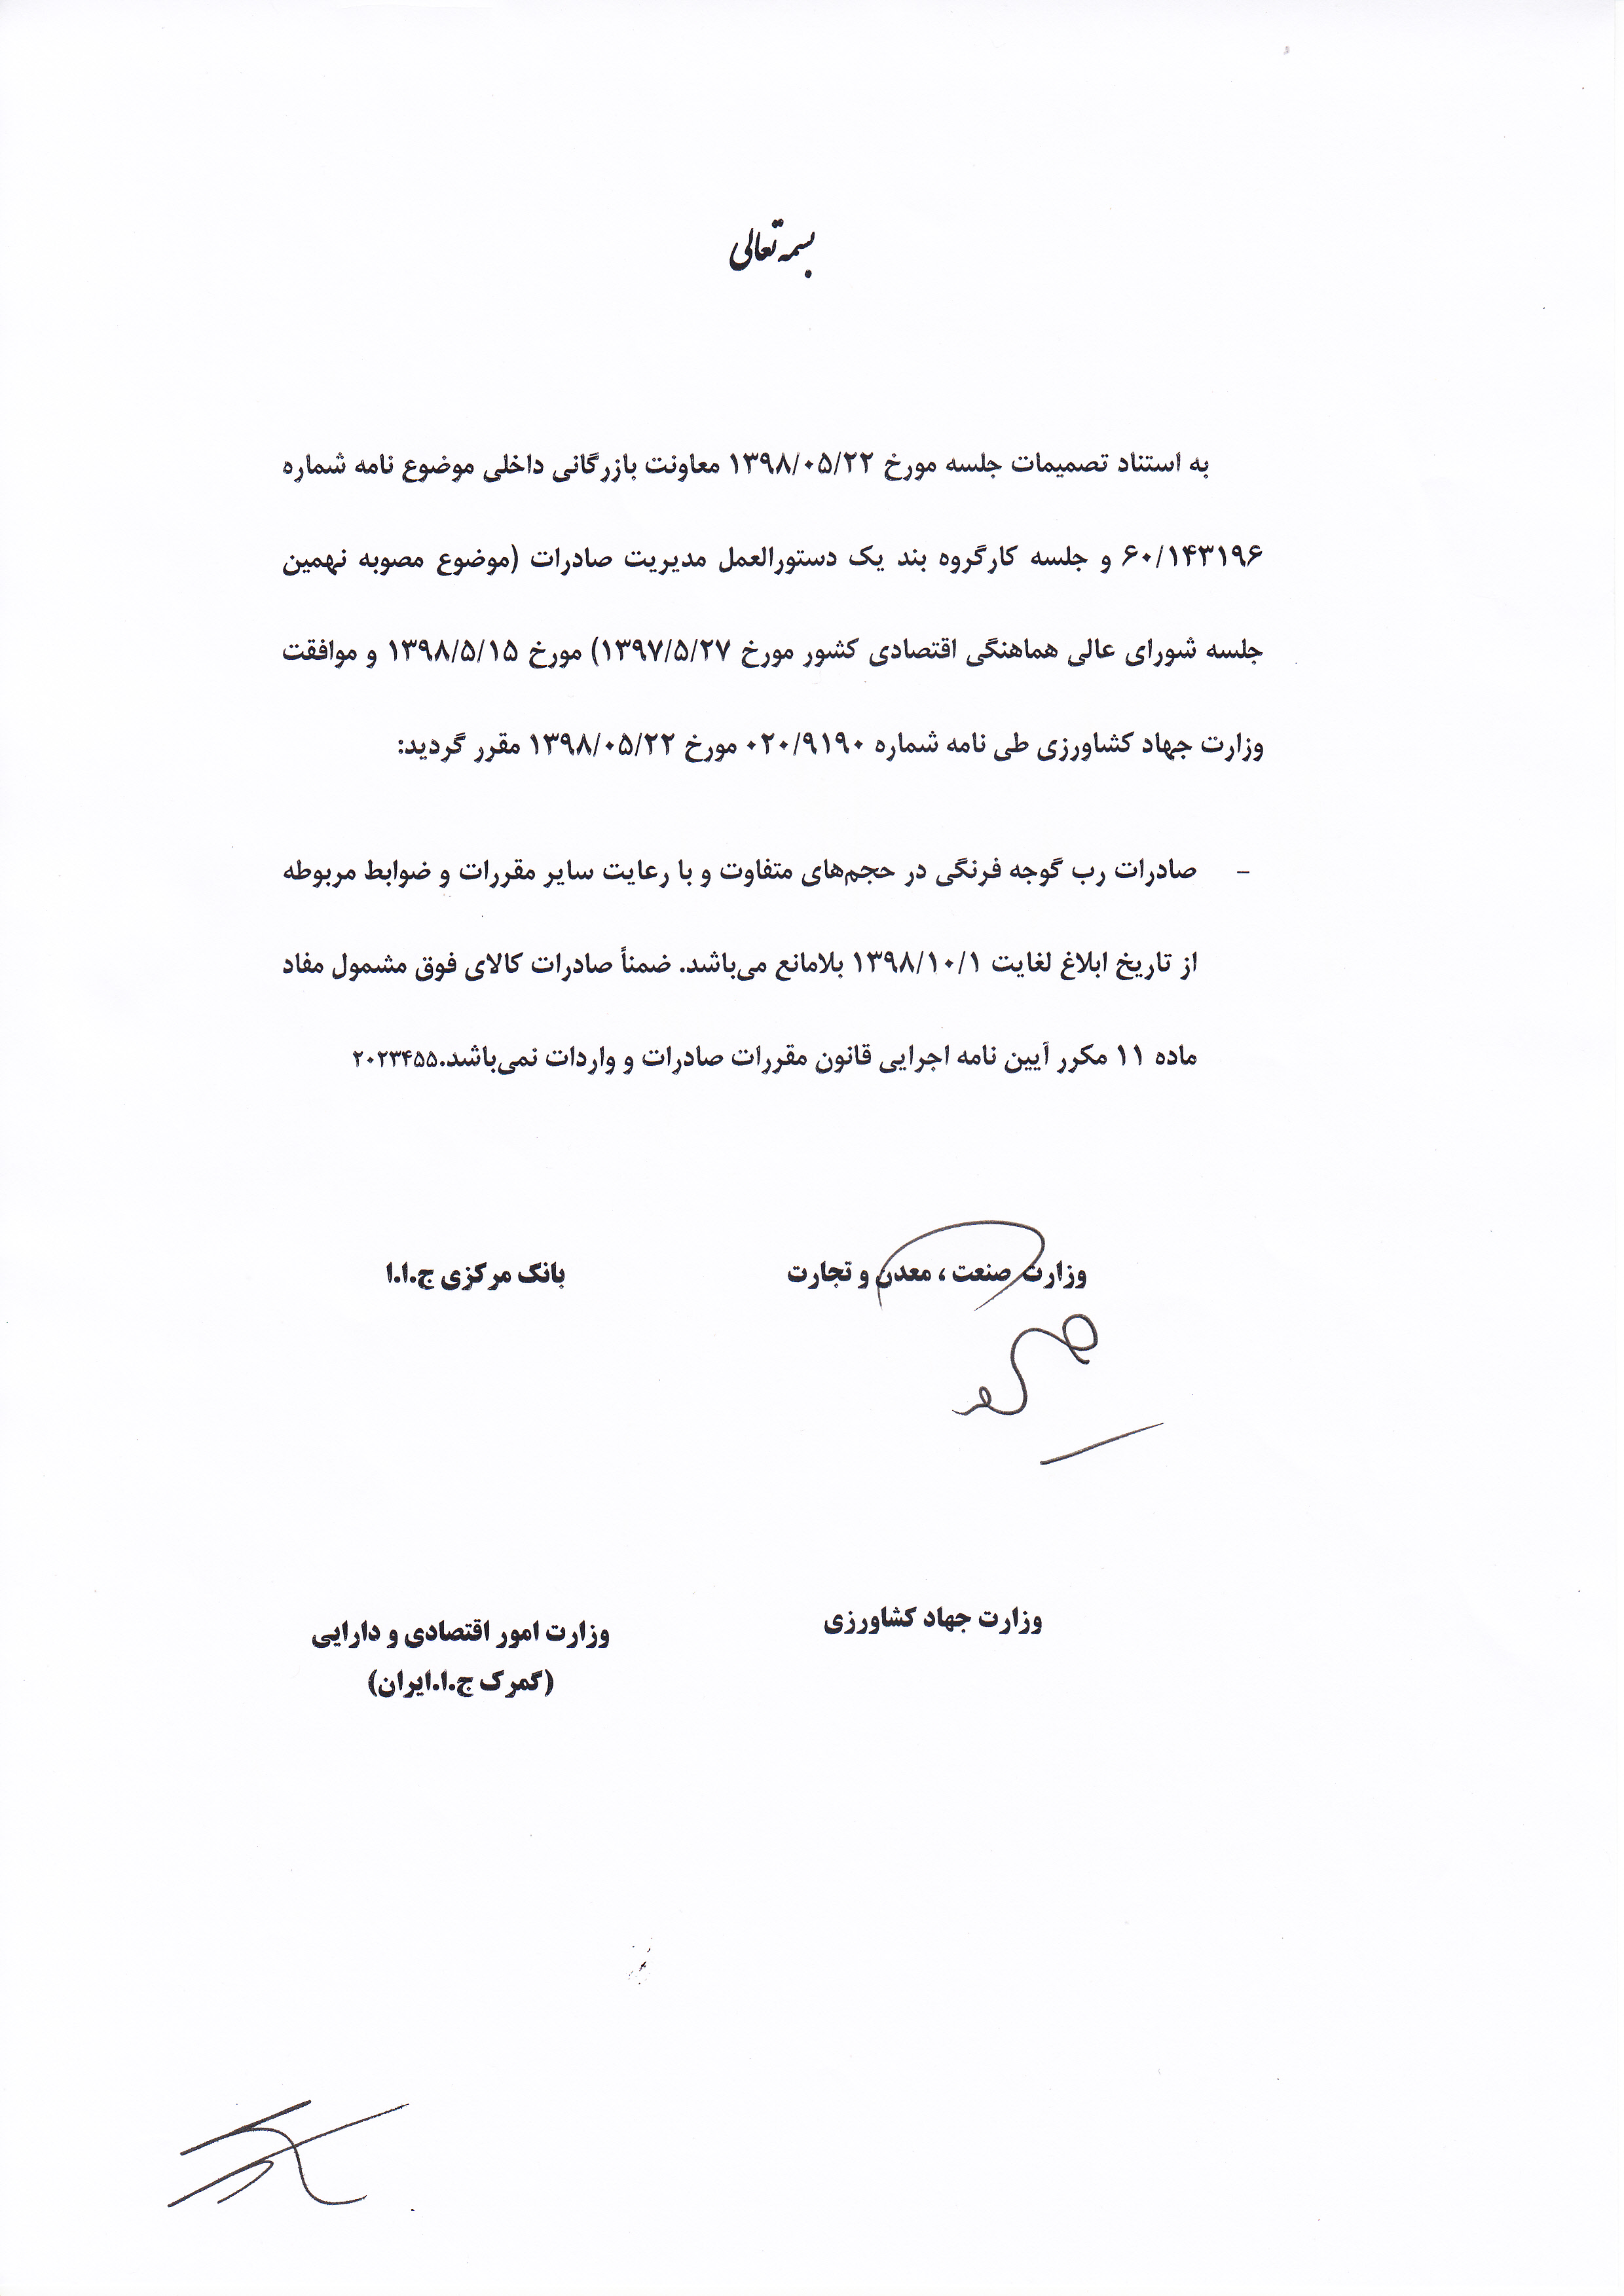 بسمه تعالی
به استناد تصمیمات جلسه مورخ ۱۳۹۸/۰۵/۲۲ معاونت بازرگانی داخلی موضوع نامه شماره
۶۰/۱۴۳۱۹۶ و جلسه کارگروه بند یک دستورالعمل مدیریت صادرات (موضوع مصوبه نهمین
جلسه شورای عالی هماهنگی اقتصادی کشور مورخ ۱۳۹۷/۵/۲۷) مورخ ۱۳۹۸/۵/۱۵ و موافقت
وزارت جهاد کشاورزی طی نامه شماره ۰۲۰/۹۱۹۰ مورخ ۱۳۹۸/۰۵/۲۲ مقرر گردید:
- صادرات رب گوجه فرنگی در حجم‌های متفاوت و با رعایت سایر مقررات و ضوابط مربوطه
از تاریخ ابلاغ لغایت ۱۳۹۸/۱۰/۱ بلامانع می‌باشد. ضمناً صادرات کالای فوق مشمول مفاد
ماده ۱۱ مکرر آیین نامه اجرایی قانون مقررات صادرات و واردات نمی‌باشد.۲۰۲۳۴۵۵
وزارت صنعت ، معدن و تجارت
بانک مرکزی ج.ا.ا
وزارت جهاد کشاورزی
وزارت امور اقتصادی و دارایی
(گمرک ج.ا.ایران)